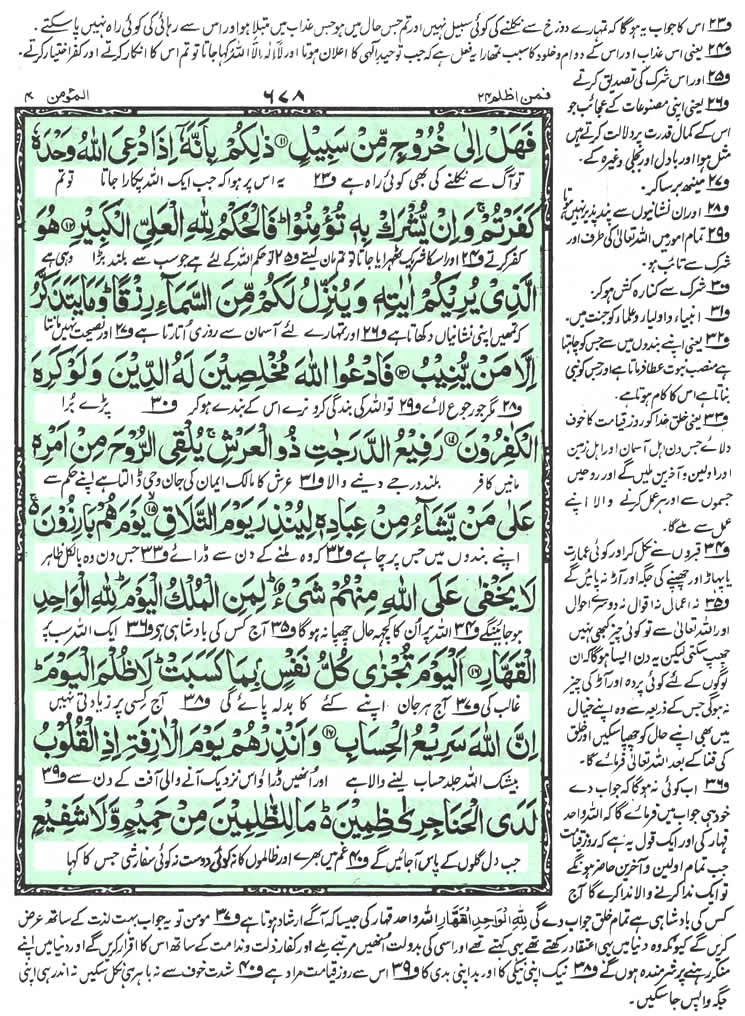 ف۲۳ اس کا جواب یہ ہوگا کہ تمہارے دوزخ سے نکلنے کی کوئی سبیل نہیں اور تم جس حال میں ہو جس عذاب میں مبتلا ہو اور اس سے رہائی کی کوئی راہ نہیں پا سکتے۔
ف۲۴ یعنی اس عذاب اور اس کے دوام و خلود کا سبب تمھارا یہ فعل ہے کہ جب توحید الٰہی کا اعلان ہوتا اور لَآ اِلٰہَ اِلَّا اللہُ کہا جاتا تو تم اس کا انکار کرتے اور کفر اختیار کرتے۔
ف۲۵ اور اس شرک کی تصدیق کرتے
ف۲۶ یعنی اپنی مصنوعات کے عجائب جو
اس کے کمال قدرت پر دلالت کرتے ہیں
مثل ہوا اور بادل اور بجلی وغیرہ کے۔
ف۲۷ مینھ برسا کر۔
ف۲۸ اور ان نشانیوں سے پند پذیر نہیں ہوتا
ف۲۹ تمام امور میں اللہ تعالیٰ کی طرف اور
شرک سے تائب ہو۔
ف۳۰ شرک سے کنارہ کش ہو کر۔
ف۳۱ انبیاء و اولیاء و علماء کو جنت میں۔
ف۳۲ یعنی اپنے بندوں میں سے جس کو چاہتا
ہے منصب نبوت عطا فرماتا ہے اور جس کو نبی
بناتا ہے اس کا کام ہوتا ہے۔
ف۳۳ یعنی خلق خدا کو روز قیامت کا خوف
دلائے جس دن اہل آسمان اور اہل زمین
اور اولین و آخرین ملیں گے اور روحیں
جسموں سے اور ہر عمل کرنے والا اپنے
عمل سے ملے گا۔
ف۳۴ قبروں سے نکل کر اور کوئی عمارت
یا پہاڑ اور چھپنے کی جگہ اور آڑ نہ پائیں گے
ف۳۵ نہ اعمال نہ اقوال نہ دوسرے احوال
اور اللہ تعالیٰ سے تو کوئی چیز کبھی نہیں
چھپ سکتی لیکن یہ دن ایسا ہوگا کہ ان
لوگوں کے لئے کوئی پردہ اور آڑ کی چیز
نہ ہوگی جس کے ذریعہ سے وہ اپنے خیال
میں بھی اپنے حال کو چھپا سکیں اور خلق
کی فنا کے بعد اللہ تعالیٰ فرمائے گا۔
ف۳۶ اب کوئی نہ ہوگا کہ جواب دے
خود ہی جواب میں فرمائے گا کہ اللہ واحد
قہار کی اور ایک قول یہ ہے کہ روز قیامت
جب تمام اولین و آخرین حاضر ہوں گے
تو ایک ندا کرنے والا ندا کرے گا آج
فمن اظلم ۲۴ ۶۷۸ المؤمن ۴۰
فَهَلْ اِلٰى خُرُوْجٍ مِّنْ سَبِيْلٍ ۝۱۱ ذٰلِكُمْ بِاَنَّهٗۤ اِذَا دُعِيَ اللّٰهُ وَحْدَهٗ
تو آگ سے نکلنے کی بھی کوئی راہ ہے ف۲۳ یہ اس پر ہوا کہ جب ایک اللہ پکارا جاتا تو تم
كَفَرْتُمْ ۚ وَاِنْ يُّشْرَكْ بِهٖ تُؤْمِنُوْا ؕ فَالْحُكْمُ لِلّٰهِ الْعَلِيِّ الْكَبِيْرِ ۝۱۲ هُوَ
کفر کرتے ف۲۴ اور اس کا شریک ٹھہرایا جاتا تو تم مان لیتے ف۲۵ تو حکم اللہ کے لئے ہے جو سب سے بلند بڑا وہی ہے
الَّذِيْ يُرِيْكُمْ اٰيٰتِهٖ وَيُنَزِّلُ لَكُمْ مِّنَ السَّمَآءِ رِزْقًا ؕ وَمَا يَتَذَكَّرُ
کہ تمہیں اپنی نشانیاں دکھاتا ہے ف۲۶ اور تمہارے لئے آسمان سے روزی اُتارتا ہے ف۲۷ اور نصیحت نہیں مانتا
اِلَّا مَنْ يُّنِيْبُ ۝۱۳ فَادْعُوا اللّٰهَ مُخْلِصِيْنَ لَهُ الدِّيْنَ وَلَوْ كَرِهَ
ف۲۸ مگر جو رجوع لائے ف۲۹ تو اللہ کی بندگی کرو نرے اس کے بندے ہو کر ف۳۰ پڑے بُرا
الْكٰفِرُوْنَ ۝۱۴ رَفِيْعُ الدَّرَجٰتِ ذُو الْعَرْشِ ۚ يُلْقِي الرُّوْحَ مِنْ اَمْرِهٖ
مانیں کافر بلند درجے دینے والا ف۳۱ عرش کا مالک ایمان کی جان وحی ڈالتا ہے اپنے حکم سے
عَلٰى مَنْ يَّشَآءُ مِنْ عِبَادِهٖ لِيُنْذِرَ يَوْمَ التَّلَاقِ ۝۱۵ يَوْمَ هُمْ بَارِزُوْنَ ۚ
اپنے بندوں میں جس پر چاہے ف۳۲ کہ وہ ملنے کے دن سے ڈرائے ف۳۳ جس دن وہ بالکل ظاہر
لَا يَخْفٰى عَلَى اللّٰهِ مِنْهُمْ شَيْءٌ ؕ لِمَنِ الْمُلْكُ الْيَوْمَ ؕ لِلّٰهِ الْوَاحِدِ
ہو جائینگے ف۳۴ اللہ پر اُن کا کچھ حال چھپا نہ ہوگا ف۳۵ آج کس کی بادشاہی ہے ف۳۶ ایک اللہ سب پر
الْقَهَّارِ ۝۱۶ اَلْيَوْمَ تُجْزٰى كُلُّ نَفْسٍ بِمَا كَسَبَتْ ؕ لَا ظُلْمَ الْيَوْمَ ؕ
غالب کی ف۳۷ آج ہر جان اپنے کئے کا بدلہ پائے گی ف۳۸ آج کسی پر زیادتی نہیں
اِنَّ اللّٰهَ سَرِيْعُ الْحِسَابِ ۝۱۷ وَاَنْذِرْهُمْ يَوْمَ الْاٰزِفَةِ اِذِ الْقُلُوْبُ
بیشک اللہ جلد حساب لینے والا ہے اور اُنھیں ڈراؤ اس نزدیک آنے والی آفت کے دن سے ف۳۹
لَدَى الْحَنَاجِرِ كٰظِمِيْنَ ؕ مَا لِلظّٰلِمِيْنَ مِنْ حَمِيْمٍ وَّلَا شَفِيْعٍ
جب دل گلوں کے پاس آ جائیں گے ف۴۰ غم میں بھرے اور ظالموں کا نہ کوئی دوست نہ کوئی سفارشی جس کا کہا
کس کی بادشاہی ہے تمام خلق جواب دے گی لِلّٰهِ الْوَاحِدِ الْقَهَّارِ اللہ واحد قہار کی جیسا کہ آگے ارشاد ہوتا ہے ف۳۷ مومن تو یہ جواب بہت لذت کے ساتھ عرض
کریں گے کیونکہ وہ دنیا میں یہی اعتقاد رکھتے تھے یہی کہتے تھے اور اسی کی بدولت اُنھیں مرتبے ملے اور کفار ذلت و ندامت کے ساتھ اس کا اقرار کریں گے اور دنیا میں اپنے
منکر رہنے پر شرمندہ ہوں گے ف۳۸ نیک اپنی نیکی کا اور بد اپنی بدی کا ف۳۹ اس سے روز قیامت مراد ہے ف۴۰ شدت خوف سے نہ باہر ہی نکل سکیں نہ اندر ہی اپنی
جگہ واپس جا سکیں۔